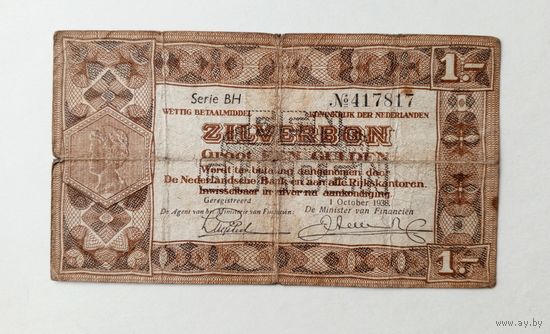 1.-
Serie BH
No 417817
WETTIG BETAALMIDDEL KONINKRIJK DER NEDERLANDEN
ZILVERBON
Groot EEN GULDEN
Wordt in betaling aangenomen door
De Nederlandsche Bank en aan alle Rijkskantoren.
Inwisselbaar in zilver na aankondiging.
Geregistreerd 1 October 1938.
De Agent van het Ministerie van Financiën: De Minister van Financiën
1.-
www.ay.by